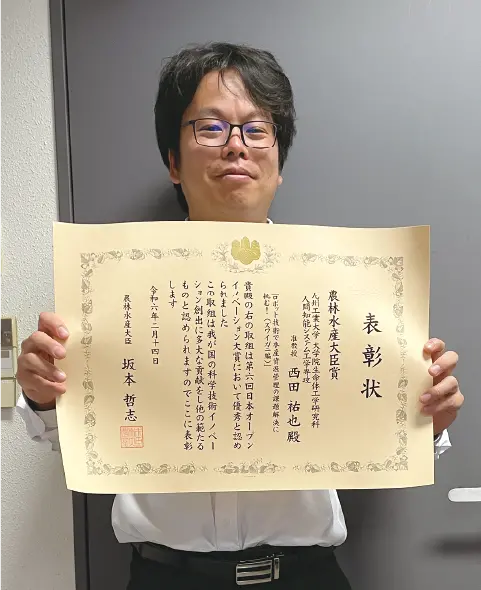 表彰状
農林水産大臣賞
九州工業大学 大学院生命体工学研究科
人間知能システム工学専攻
准教授
西田 祐也 殿
ロボット技術で水産資源管理の課題解決に
挑む！（ズワイガニ編）
貴殿の右の取組は第六回日本オープン
イノベーション大賞において優秀と認め
られました
この取組は我が国の科学技術イノベー
ション創出に多大な貢献をし他の範たる
ものと認められますのでここに表彰
します
令和六年二月十四日
農林水産大臣
坂本 哲志